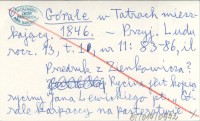 Górale w Tatrach miesz-
kający 1846. - Przyj. Ludu
rocz. 13, t. II, nr 11: 83-86, il
Przedruk z Zienkowicza?
Rycina jest kopią
ryciny Jana Lewickiego pt. Gó-
rale Karpaccy na pasterstwie